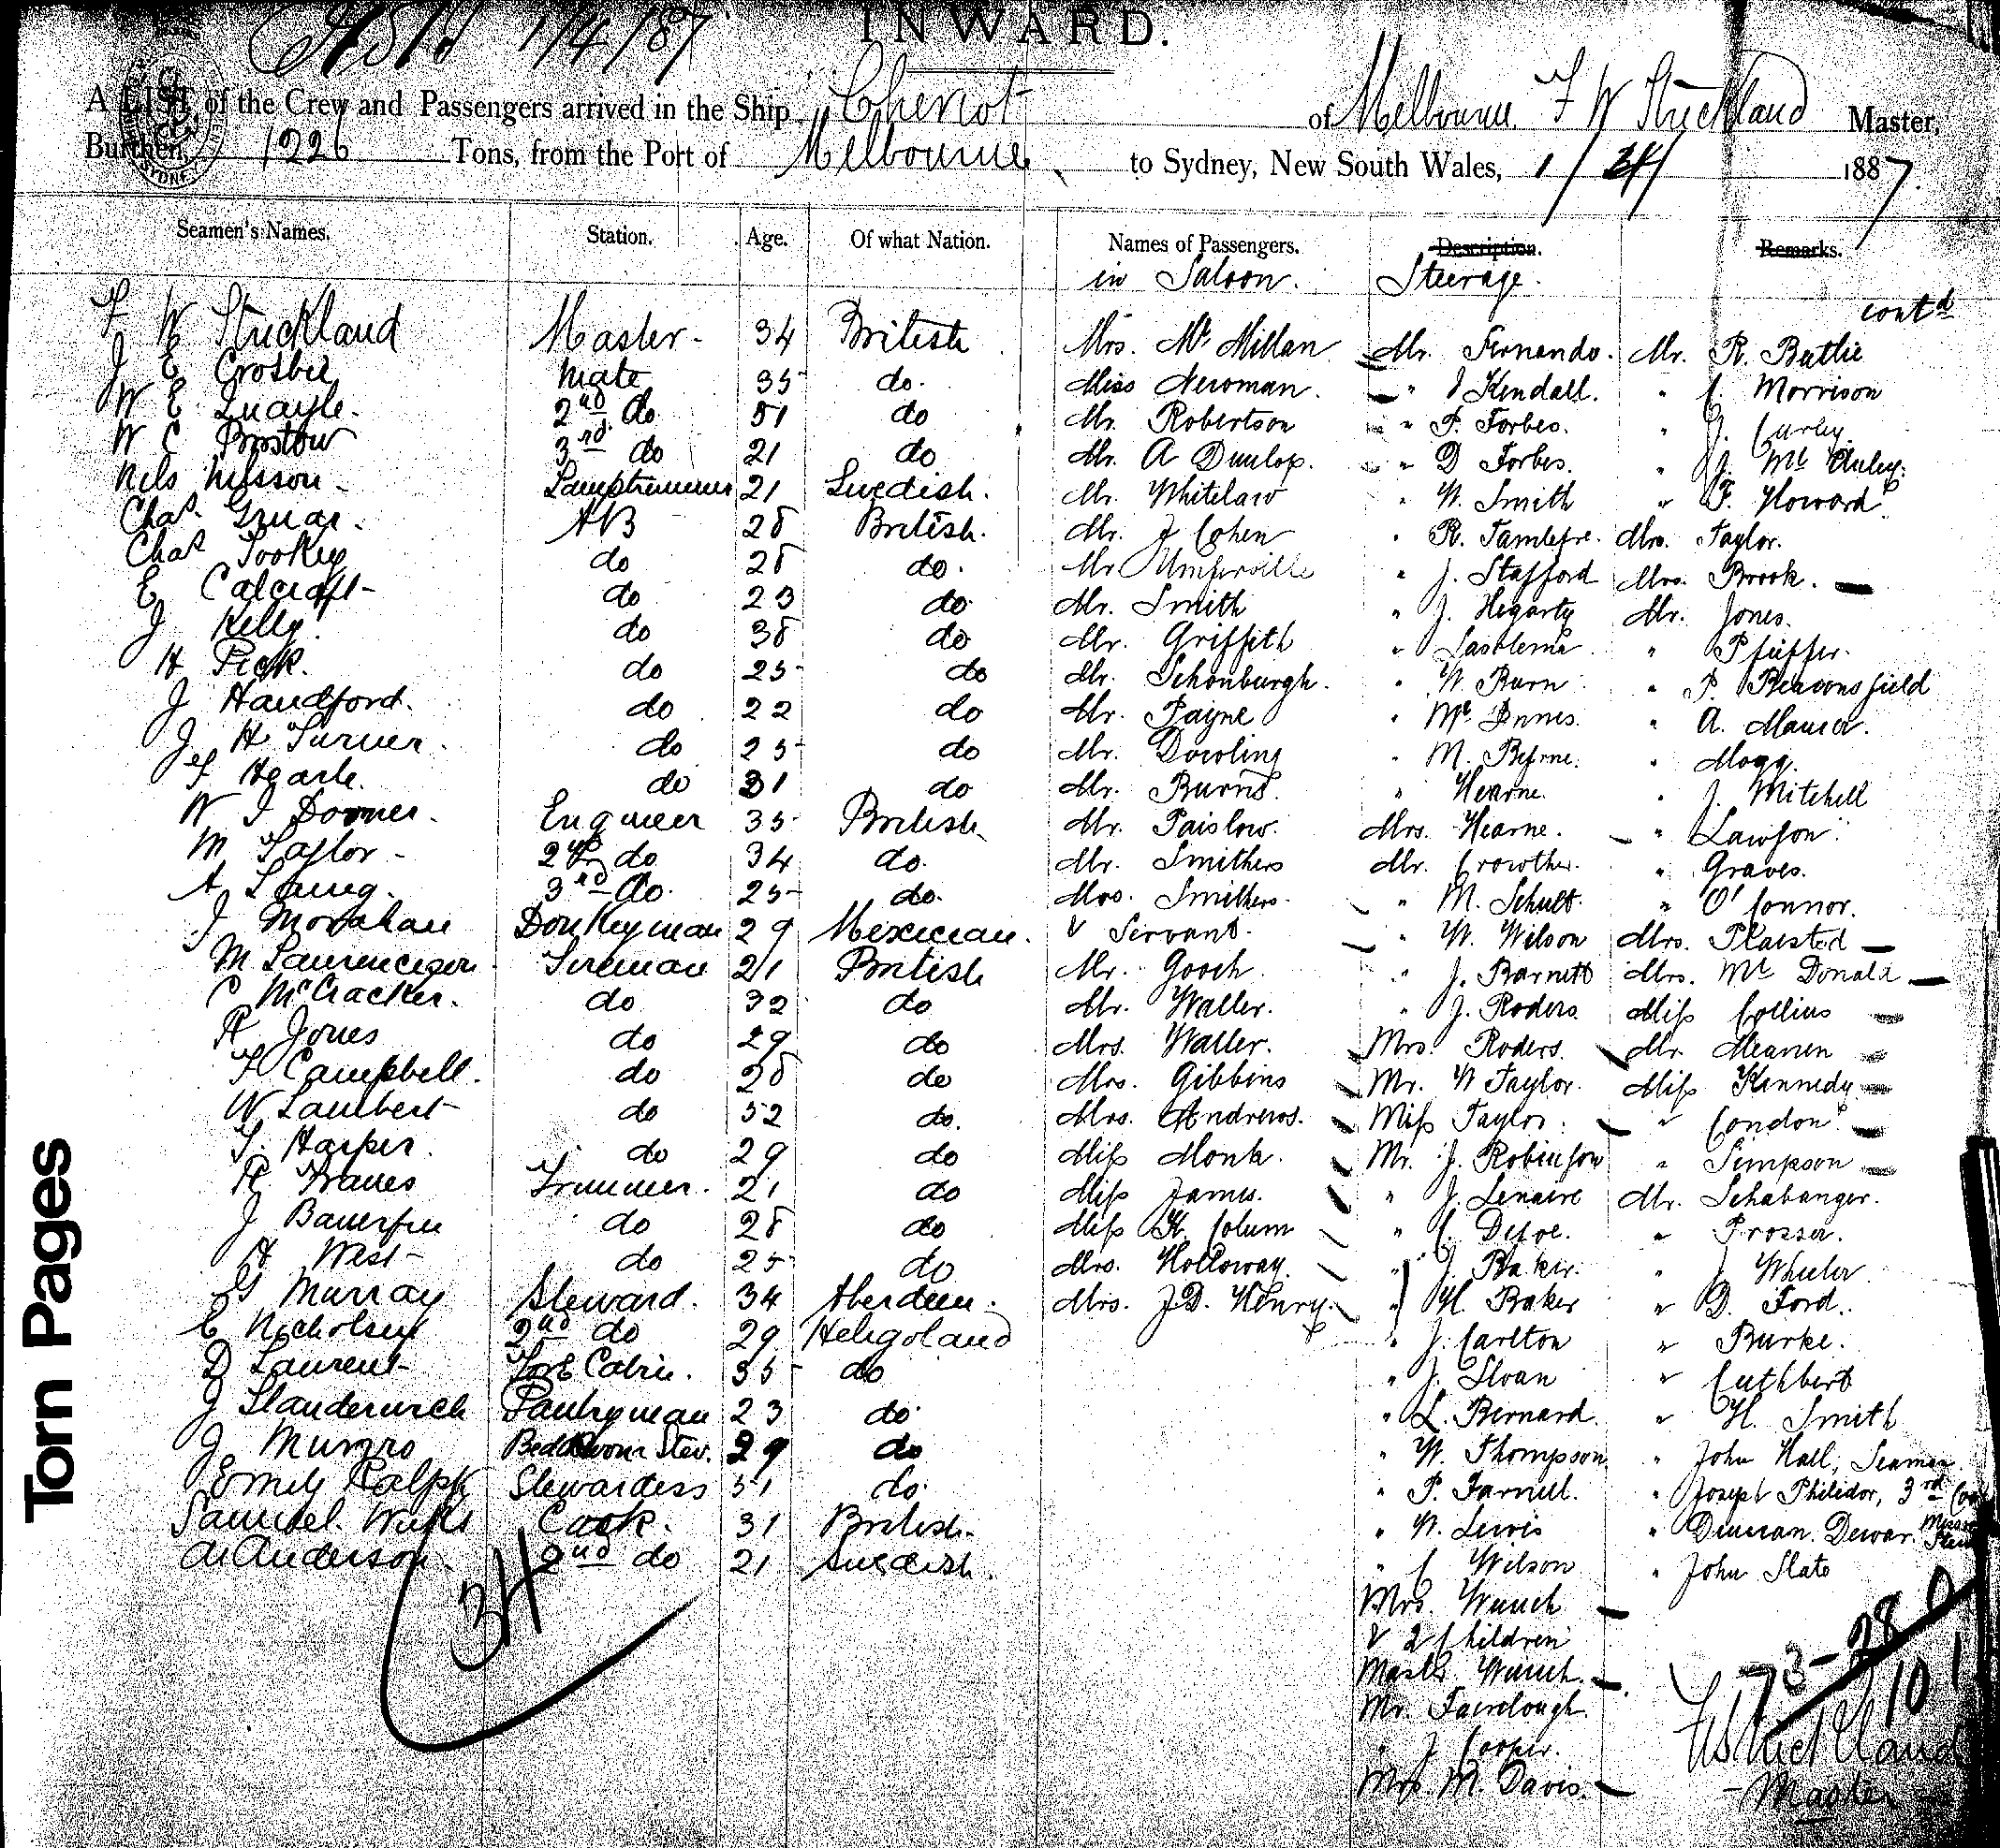 1/4/87
INWARD.
A LIST of the Crew and Passengers arrived in the Ship Cheviot of Melbourne F W Strickland Master,
Burthen 1226 Tons, from the Port of Melbourne to Sydney, New South Wales, 1/4/ 1887.
Seamen's Names. Station. Age. Of what Nation. Names of Passengers. Description. Remarks.
in Saloon. Steerage. contd
F W Strickland Master 34 British Mrs. McMillan Mr. Fernando. Mr. R. Battie
J E Crosbie Mate 35 do. Miss Newman. " J Kendall. " C. Morrison
W E Quayle. 2nd do. 51 do Mr. Robertson " P. Forbes. " J. Curley.
W C Bristow 3rd do 21 do Mr. A Dunlop. " D Forbes. " J. McAuley.
Nils Nilsson Lamptrimmer 21 Swedish. Mr. Whitelaw " W. Smith " F. Howard
Chas. AB 28 British. Mr. J Cohen " R. Mrs. Taylor.
Chas Tookey do 28 do. Mr Umferville " J. Stafford Mrs. Brook.
E Calcraft do 23 do Mr. Smith " J. Hegarty Mr. Jones.
J Kelly. do 38 do Mr. Griffith " " Pfieffer.
H Pick. do 25 do Mr. Schonburgh. " W. Burn " P. Beaconsfield
J Handford. do 22 do Mr. Payne " McInnes. " A.
J H Turner. do 25 do Mr. Dowling " M. Byrne. " Mogg.
F Hearle. do 31 do Mr. Burns. " Hearne. " J. Mitchell
W J Engineer 35 British Mr. Paislow. Mrs. Hearne. " Lawson.
M Taylor 2nd do 34 do. Mr. Smithers Mr. Crowther. " Graves.
A Laing. 3rd do. 25 do. Mrs. Smithers. " M. Schult. " O'Connor.
J Monahan Donkeyman 29 Mexican. & Servant. " W. Wilson Mrs. Plaisted
M Fireman 21 British Mr. Gooch. " J. Barnett Mrs. McDonald
C McCracken. do 32 do Mr. Waller. " J. Roders Miss Collins
R Jones do 29 do Mrs. Waller. Mrs. Roders. Mr.
F Campbell. do 28 do Mrs. Gibbins Mr. W Taylor. Miss Kennedy
W Lambert do 52 do. Mrs. Andrews. Miss Taylor. " Condon
T. Harper. do 29 do Miss Monk. Mr. J. Robinson " Simpson
R Trimmer. 21 do Miss James. " J. Mr. Schabanger.
J do 28 do Miss H. Colum " C. Defoe. " Prosser.
H West do 25 do Mrs. Holloway. " J. Baker. " J Wheeler
G Murray Steward. 34 Aberdeen. Mrs. J.D. Henry. " H. Baker " D. Ford.
E 2nd do 29 Heligoland " J. Carlton " Burke.
D Laurent Fore Cabin. 35 do " J. Sloan " Cuthbert
J Pantryman 23 do " L. Bernard. " H. Smith
J Munro Bedroom Stew. 29 do " W. Thompson. " John Hall, Seaman
Emily Ralph Stewardess 51 do. " P. Farnell. " Joseph Philidor, 3rd
Samuel Cook. 31 British. " W. Lewis " Duncan Dewar.
A Anderson 2nd do 21 Swedish. " C Wilson " John Slate
34
Mrs. Wunch
& 2 Children
Master Wunch.
Mr. Fairclough.
" J Cooper.
Mrs M. Davis.
73-28
101
F W Strickland
Master
Torn Pages